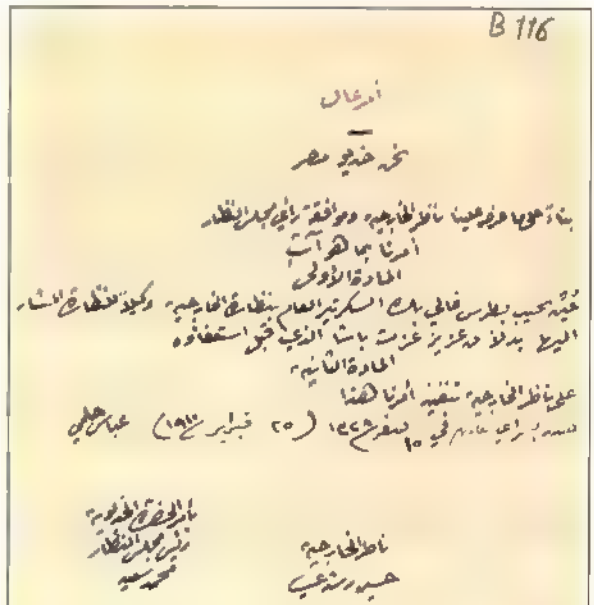 B 116
أمر عال
نحن خديو مصر
بناءً على ما عرضه علينا ناظر الخارجية وموافقة رأي مجلس النظار
أمرنا بما هو آت
المادة الأولى
عُيّن نجيب بطرس غالي بك السكرتير العام بنظارة الخارجية وكيلا للنظارة المشار
اليها بدلا من عزيز عزت باشا الذي قُبل استعفاؤه
المادة الثانية
على ناظر الخارجية تنفيذ أمرنا هذا
صدر بسراي عابدين في ١٥ صفر سنة ١٣٢٨ (٢٥ فبراير سنة ١٩١٠) عباس حلمي
بأمر الحضرة الخديوية
رئيس مجلس النظار
محمد سعيد
ناظر الخارجية
حسين رشدي